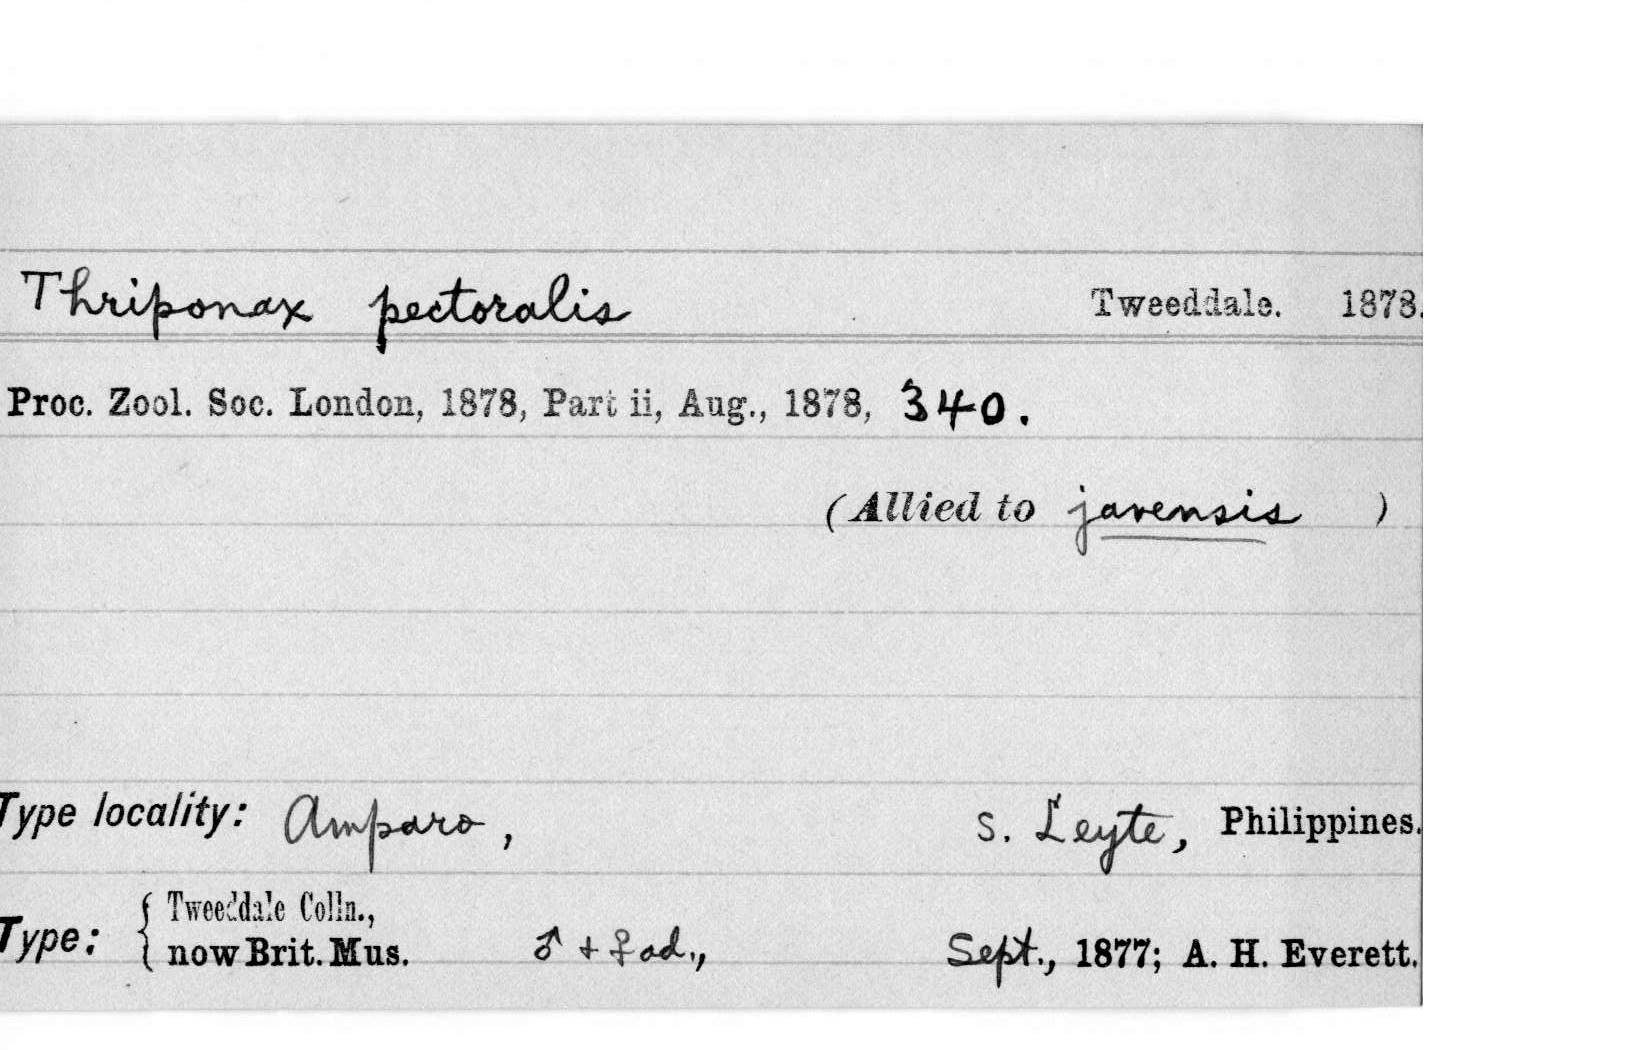 Thriponax pectoralis Tweeddale. 1878.
Proc. Zool. Soc. London, 1878, Part ii, Aug., 1878, 340.
(Allied to javensis )
Type locality: Amparo, S. Leyte, Philippines.
Type: { Tweeddale Colln.,
now Brit. Mus. ♂ + ♀ ad., Sept., 1877; A. H. Everett.